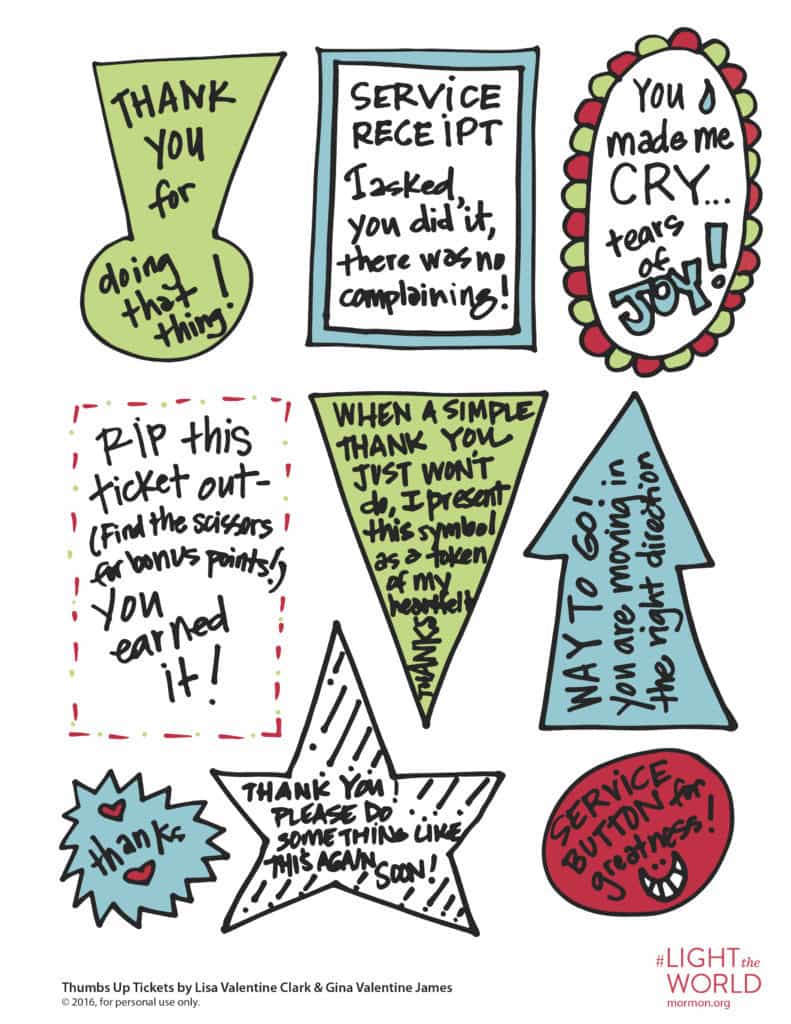 THANK
YOU
for
doing
that
thing!
SERVICE
RECEIPT
I asked,
you did it,
there was no
complaining!
You
made me
CRY...
tears
of
JOY!
RIP this
ticket out-
(Find the scissors
for bonus points!)
You
earned
it!
WHEN A SIMPLE
THANK YOU
JUST WON'T
do, I present
this symbol
as a token
of my
heartfelt
THANKS
WAY TO GO!
You are moving in
the right direction
thanks
THANK YOU!
PLEASE DO
SOMETHING LIKE
THIS AGAIN
SOON!
SERVICE
BUTTON for
greatness!
Thumbs Up Tickets by Lisa Valentine Clark & Gina Valentine James
© 2016, for personal use only.
#LIGHT the
WORLD
mormon.org